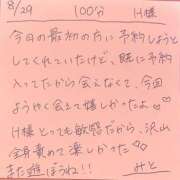 8/29 100分 H様
今日の最初の方に予約しようと
してくれていたけど、既に予約
入ってたから会えなくて、今回
ようやく会えて嬉しかったよ♡
H様とっても敏感だから、沢山
全身責めて楽しかった♡
また遊ぼうね!! みと